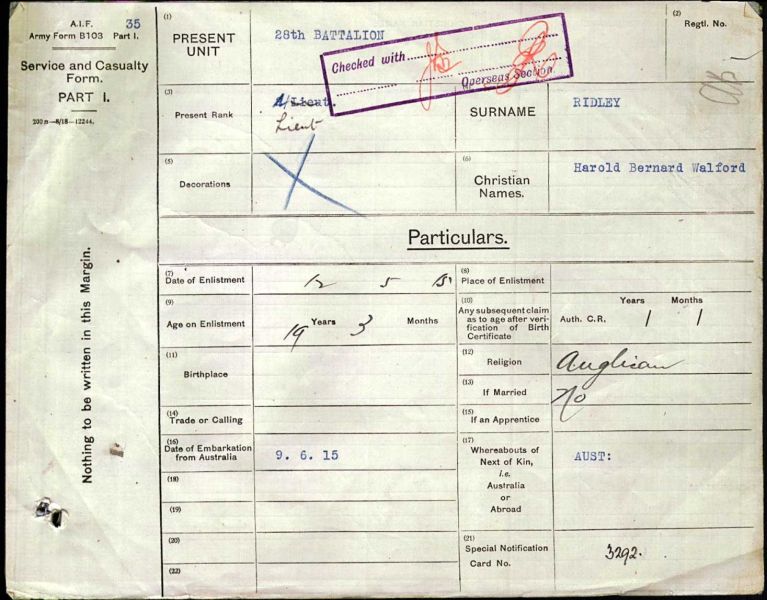 A.I.F. 35
Army Form B103 Part I.
Service and Casualty
Form.
PART I.
200M—8/18—12244.
Nothing to be written in this Margin.
(1)
PRESENT
UNIT
28th BATTALION
(2)
Regtl. No.
Checked with
Overseas Section
(3)
Present Rank
Lieut.
Lieut
SURNAME
RIDLEY
(5)
Decorations
(6)
Christian
Names.
Harold Bernard Walford
Particulars.
(7)
Date of Enlistment
12 5 15
(8)
Place of Enlistment
(9)
Age on Enlistment
19 Years 3 Months
(10)
Any subsequent claim
as to age after veri-
fication of Birth
Certificate
Auth. C.R.
Years Months
(11)
Birthplace
(12)
Religion
Anglican
(13)
If Married
No
(14)
Trade or Calling
(15)
If an Apprentice
(16)
Date of Embarkation
from Australia
9. 6. 15
(17)
Whereabouts of
Next of Kin,
i.e.
Australia
or
Abroad
AUST:
(18)
(19)
(20)
(21)
Special Notification
Card No.
3292.
(22)